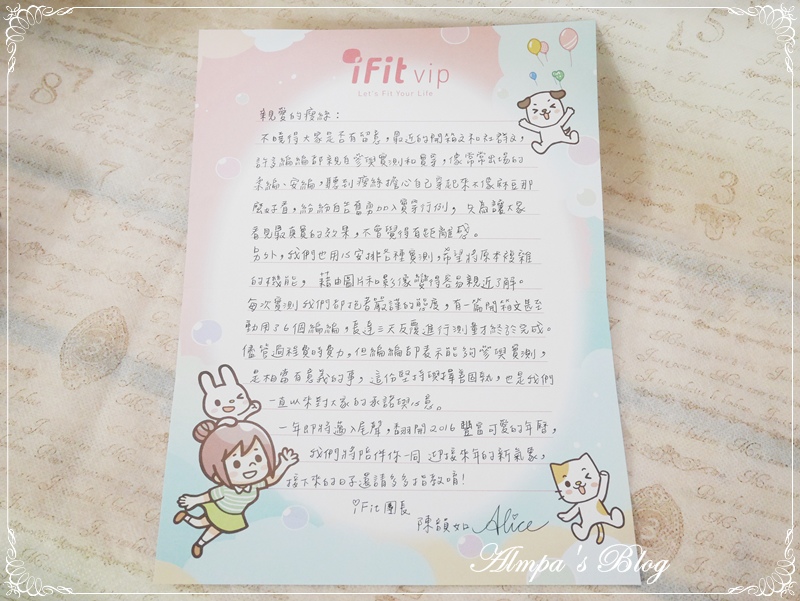 iFit vip
Let's Fit Your Life
親愛的瘦絲：
不曉得大家是否有留意，最近的開箱文和社群文，
許多編編都親自參與實測和實穿，像常常出場的
柔編、安編，聽到瘦絲擔心自己穿起來不像麻豆那
麼好看，紛紛自告奮勇加入實穿行列，只為讓大家
看見最真實的效果，不會覺得有距離感。
另外，我們也用心安排各種實測，希望將原本複雜
的機能，藉由圖片和影像變得容易親近了解。
每次實測我們都抱著嚴謹的態度，有一篇開箱文甚至
動用了6個編編，長達三天反覆進行測量才終於完成。
儘管過程費時費力，但編編都表示能夠參與實測，
是相當有意義的事，這份堅持與擇善固執，也是我們
一直以來對大家的承諾與心意。
一年即將邁入尾聲，翻開2016豐富可愛的年曆，
我們將陪伴你一同迎接來年的新氣象，
接下來的日子還請多多指教唷！
iFit 團長
陳韻如 Alice
Almpa's Blog